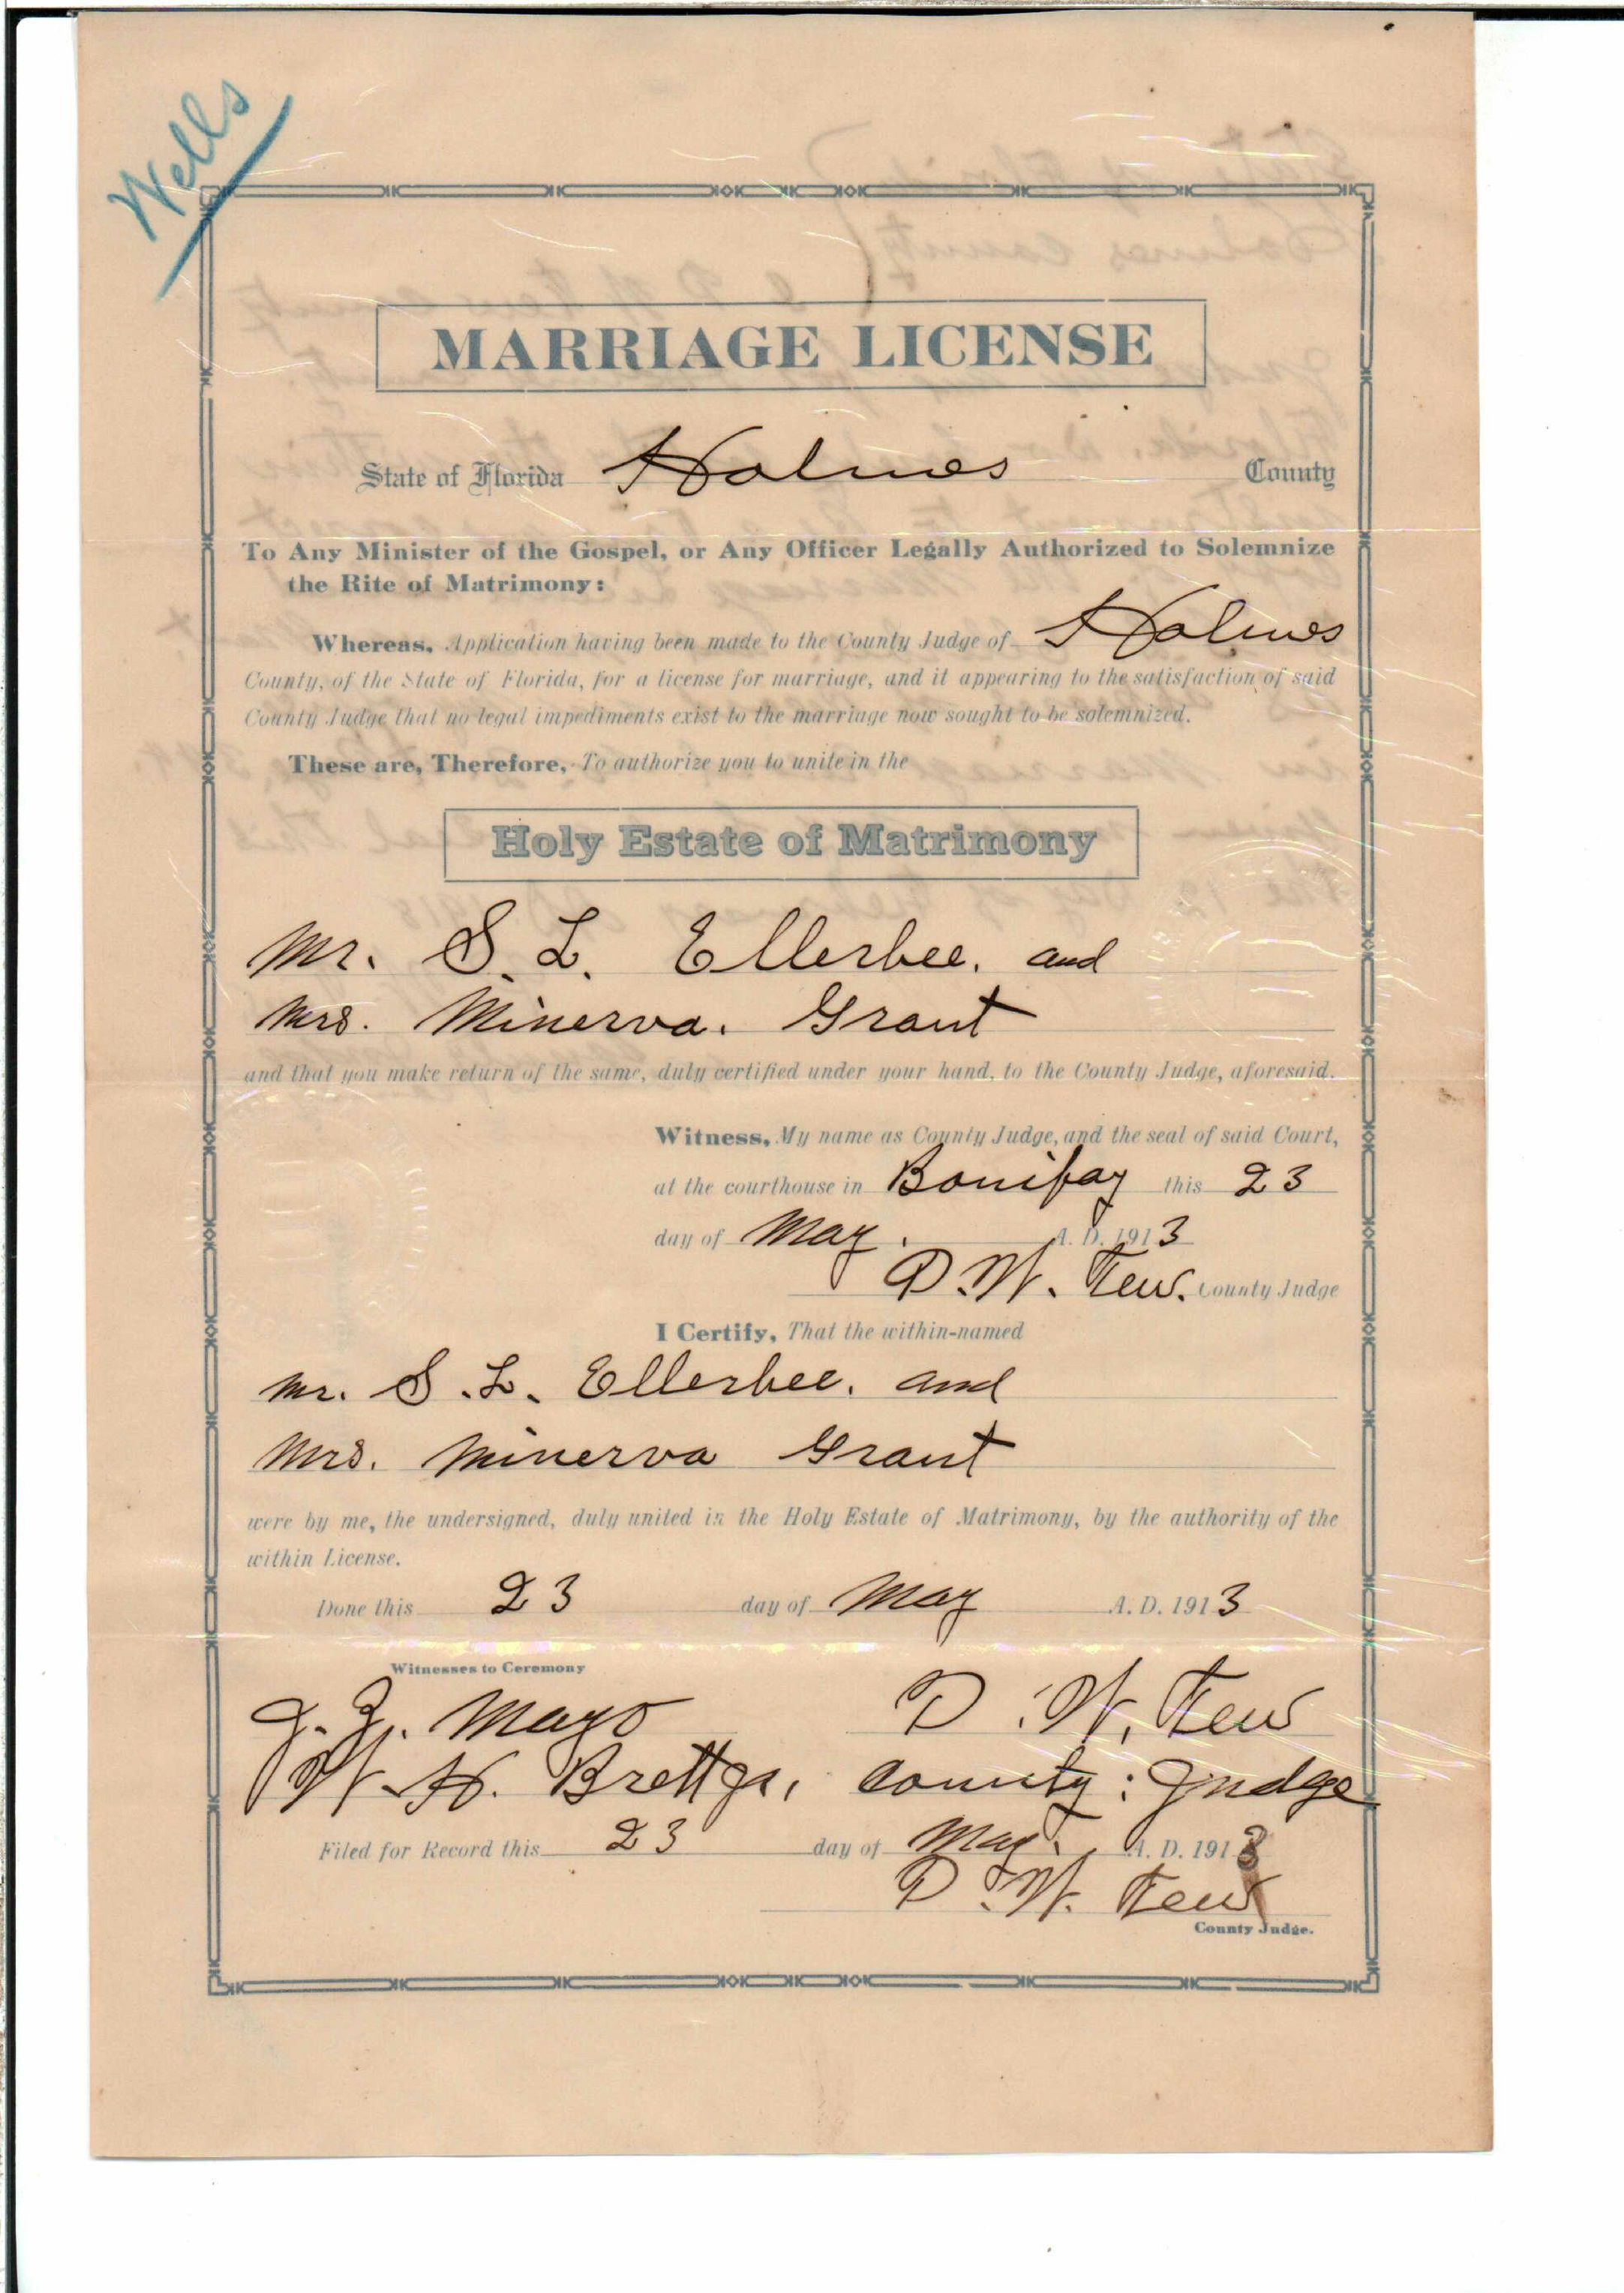 Wells
MARRIAGE LICENSE
State of Florida Holmes County
To Any Minister of the Gospel, or Any Officer Legally Authorized to Solemnize
the Rite of Matrimony:
Whereas, Application having been made to the County Judge of Holmes
County, of the State of Florida, for a license for marriage, and it appearing to the satisfaction of said
County Judge that no legal impediments exist to the marriage now sought to be solemnized.
These are, Therefore, To authorize you to unite in the
Holy Estate of Matrimony
Mr. S. L. Ellerbee. and
Mrs. Minerva. Grant
and that you make return of the same, duly certified under your hand, to the County Judge, aforesaid.
Witness, My name as County Judge, and the seal of said Court,
at the courthouse in Bonifay this 23
day of May. A. D. 1913
D. W. Tew. County Judge
I Certify, That the within-named
Mr. S. L. Ellerbee. and
Mrs. Minerva Grant
were by me, the undersigned, duly united in the Holy Estate of Matrimony, by the authority of the
within License.
Done this 23 day of May A. D. 1913
Witnesses to Ceremony
Mayo D. W. Tew
W. H. Brett Jr, County Judge
Filed for Record this 23 day of May. A. D. 1913
D. W. Tew
County Judge.